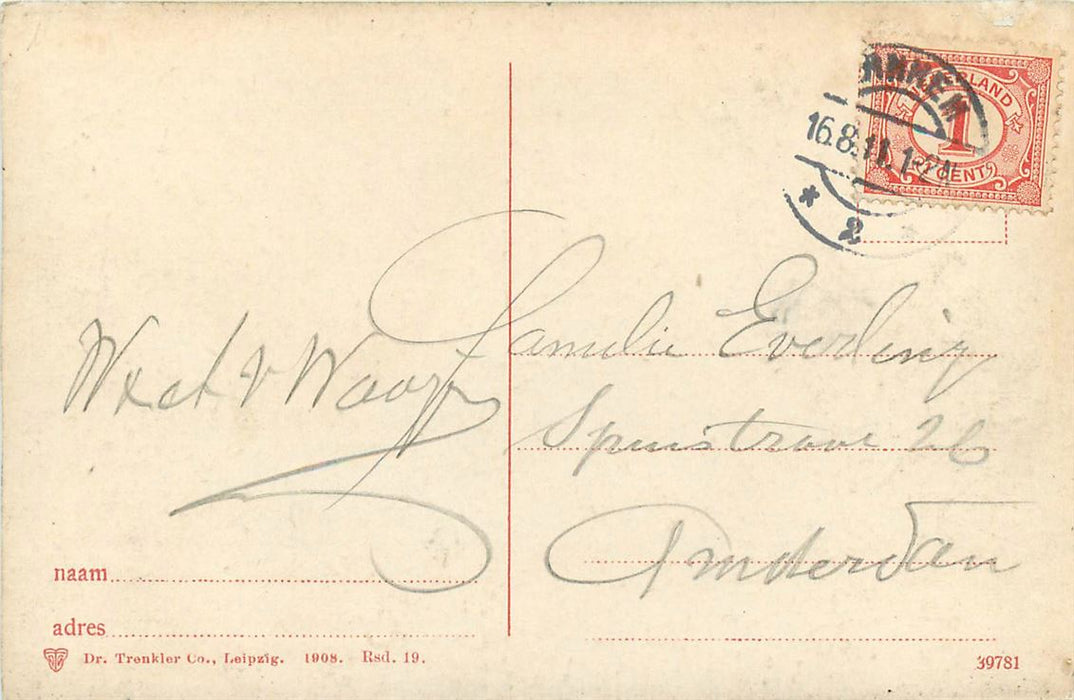 NEDERLAND
1
CENT
16.8.11. 1-2N
2
Familie Everling
Spuistraat 26
Amsterdam
naam
adres
Dr. Trenkler Co., Leipzig. 1908. Rsd. 19.
39781